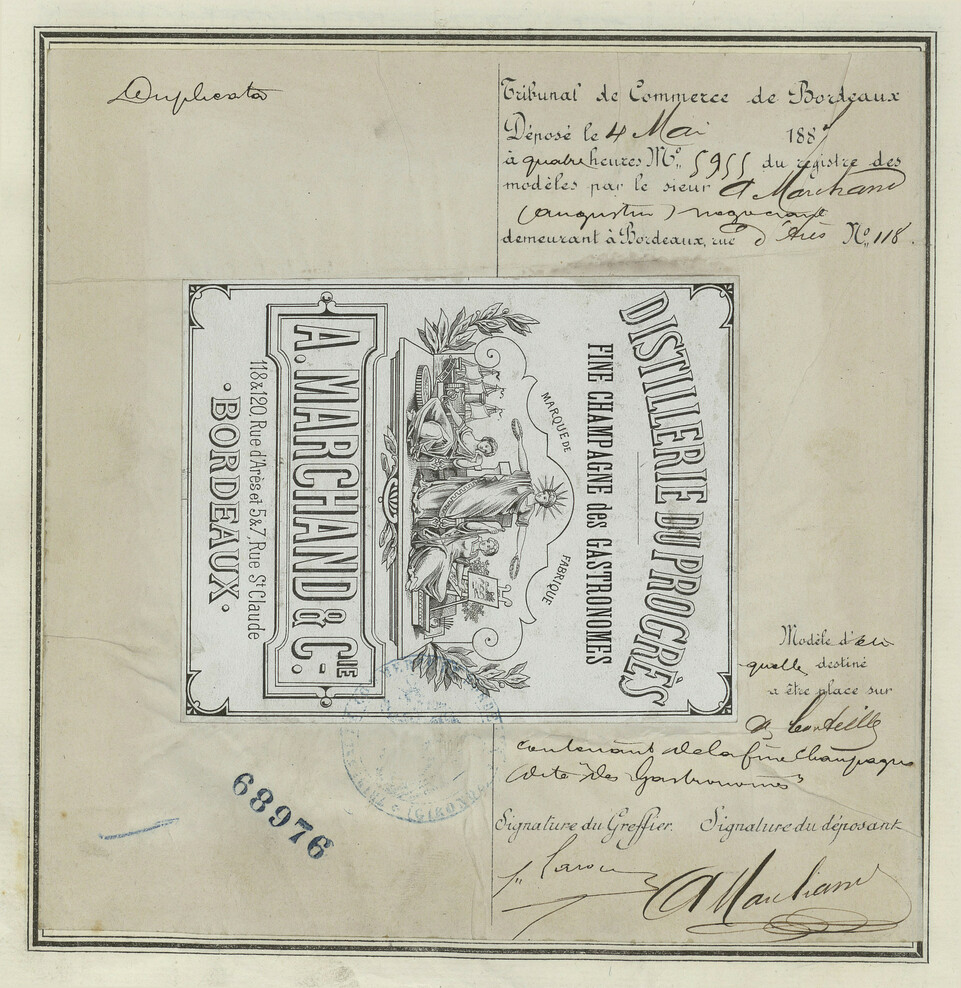 Duplicata
Tribunal de Commerce de Bordeaux
Déposé le 4 Mai 1887
à quatre heures Nº 5955 du registre des
modèles par le sieur A Marchand
(Augustin) negociant
demeurant à Bordeaux, rue d'Arès Nº 118.
DISTILLERIE DU PROGRÈS
FINE CHAMPAGNE des GASTRONOMES
MARQUE DE FABRIQUE
A. MARCHAND & CIE
118 & 120, Rue d'Arès et 5 & 7, Rue St Claude
• BORDEAUX •
Modèle d'éti
quette destiné
a être place sur
bouteille
contenant de la fine Champagne
dite "des Gastronomes"
(GIRONDE)
68976
Signature du Greffier. Signature du déposant
A Marchand